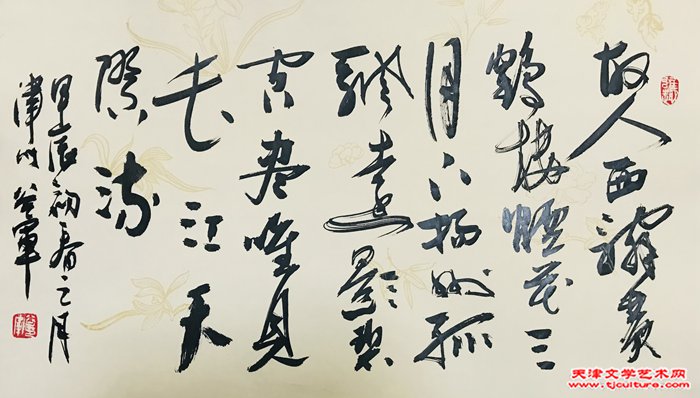 故人西辭黄
鶴楼煙花三
月下揚州孤
帆遠影碧
空盡唯見
長江天
際流
甲辰初春之月
津
軍
天津文学艺术网
http://www.tjculture.com